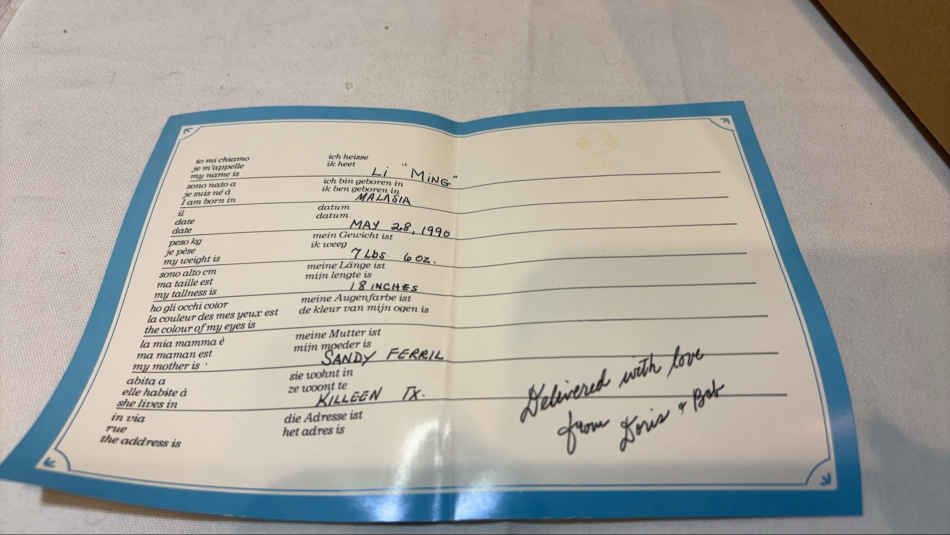 io mi chiamo ich heisse
je m'appelle ik heet
my name is LI "MING"
sono nato a ich bin geboren in
je suiz né à ik ben geboren in
I am born in MALASIA
il datum
date datum
date MAY 28, 1990
peso kg mein Gewicht ist
je pèse ik weeg
my weight is 7 Lbs 6 oz.
sono alto cm meine Länge ist
ma taille est mijn lengte is
my tallness is 18 INCHES
ho gli occhi color meine Augenfarbe ist
la couleur des mes yeux est de kleur van mijn ogen is
the colour of my eyes is
la mia mamma è meine Mutter ist
ma maman est mijn moeder is
my mother is SANDY FERRIL
abita a sie wohnt in
elle habite à ze woont te
she lives in KILLEEN TX.
in via die Adresse ist
rue het adres is
the address is
Delivered with love
from Doris & Bob